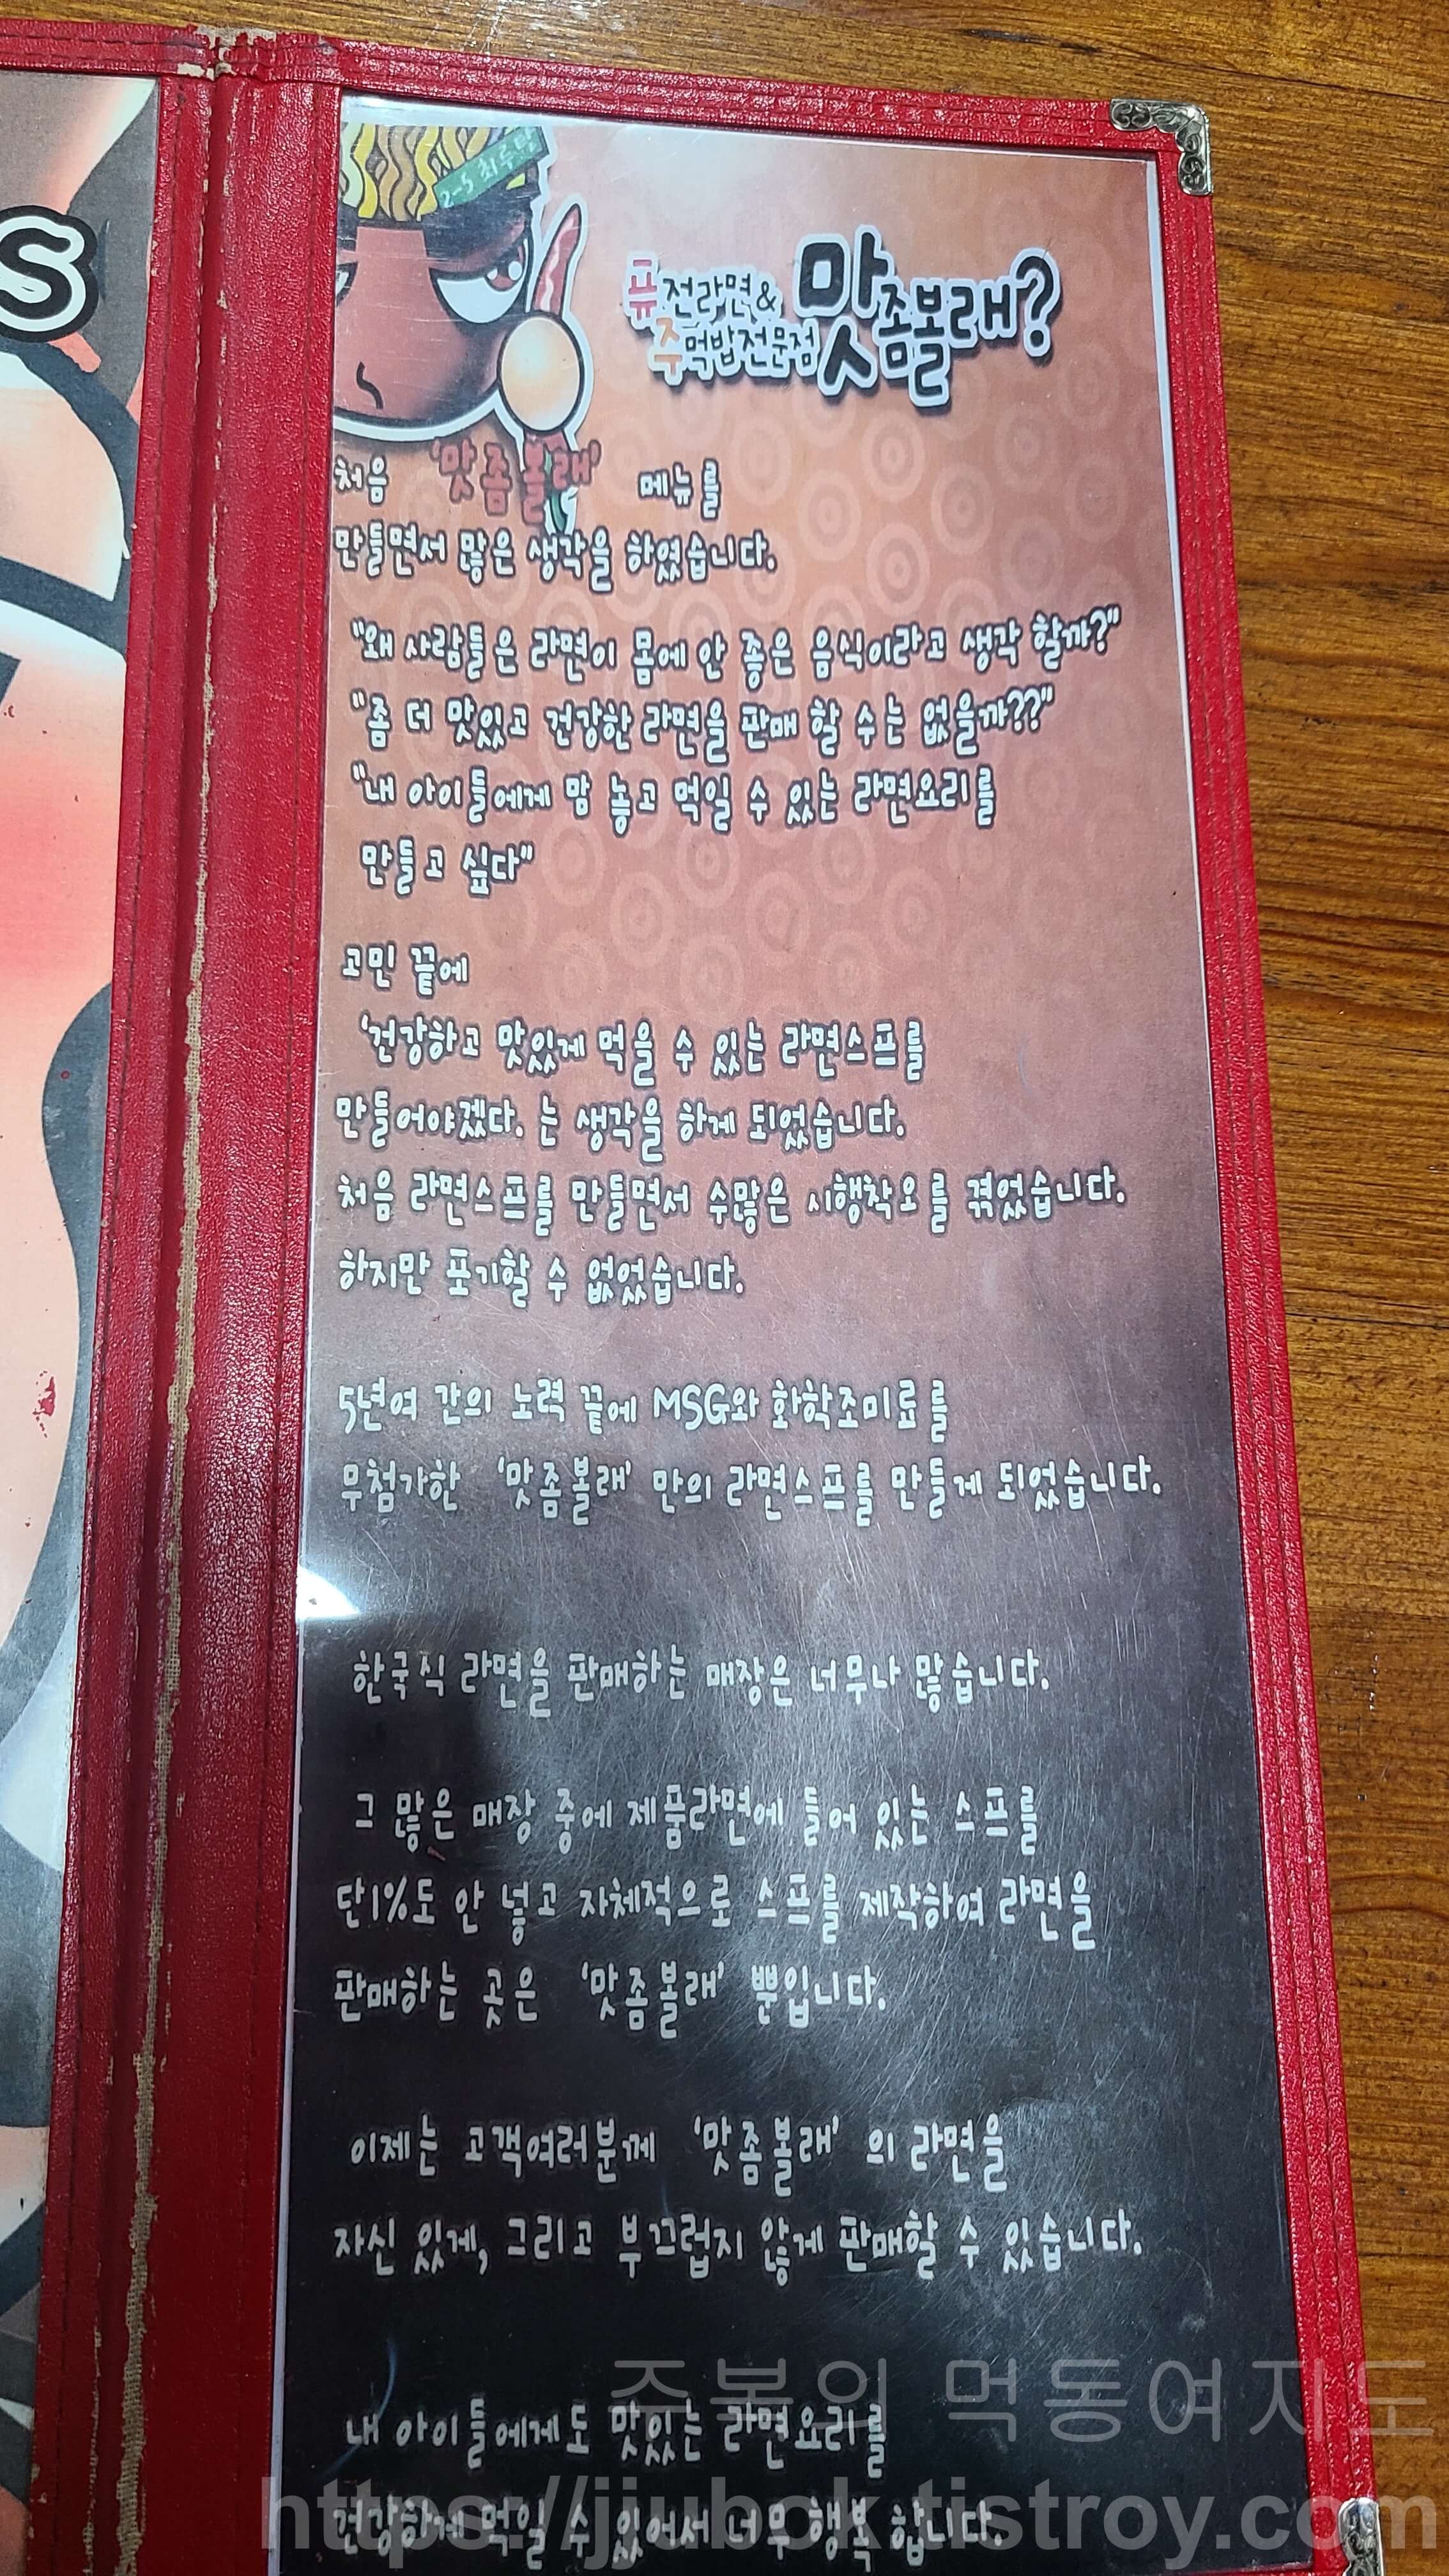 S
2-5 최루탄
퓨전라면&
주먹밥전문점
맛좀볼래?
처음 '맛좀볼래' 메뉴를
만들면서 많은 생각을 하였습니다.
"왜 사람들은 라면이 몸에 안 좋은 음식이라고 생각 할까?"
"좀 더 맛있고 건강한 라면을 판매 할 수는 없을까??"
"내 아이들에게 맘 놓고 먹일 수 있는 라면요리를
만들고 싶다"
고민 끝에
'건강하고 맛있게 먹을 수 있는 라면스프를
만들어야겠다. 는 생각을 하게 되었습니다.
처음 라면스프를 만들면서 수많은 시행착오를 겪었습니다.
하지만 포기할 수 없었습니다.
5년여 간의 노력 끝에 MSG와 화학조미료를
무첨가한 '맛좀볼래' 만의 라면스프를 만들게 되었습니다.
한국식 라면을 판매하는 매장은 너무나 많습니다.
그 많은 매장 중에 제품라면에 들어 있는 스프를
단1%도 안 넣고 자체적으로 스프를 제작하여 라면을
판매하는 곳은 '맛좀볼래' 뿐입니다.
이제는 고객여러분께 '맛좀볼래' 의 라면을
자신 있게, 그리고 부끄럽지 않게 판매할 수 있습니다.
주복의 먹동여지도
내 아이들에게도 맛있는 라면요리를
https://jjubok.tistroy.com
건강하게 먹일 수 있어서 너무 행복 합니다.